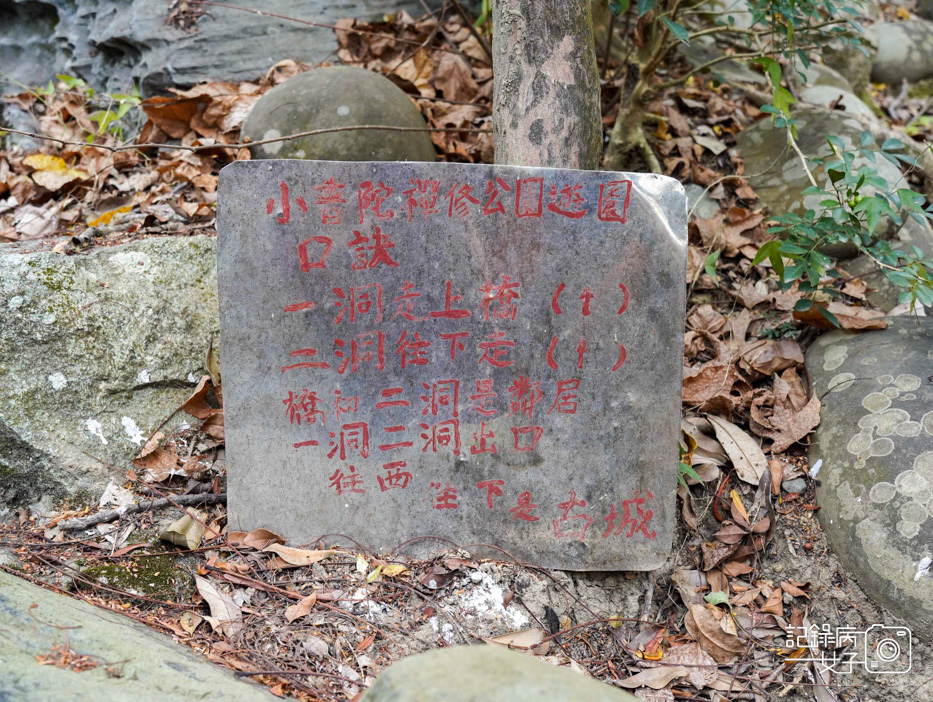 小普陀禪修公園遊園
口訣
一洞走上橋(十)
二洞往下走(十)
橋和二洞是鄰居
一洞二洞出口
往西 往下是古城
記錄病
一女子